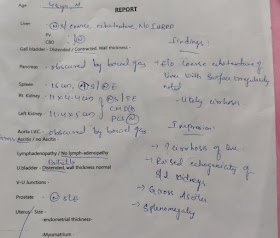 48yrs, M
REPORT
Age :
Liver (N) S / coarse echotexture, No IHBRD
PV
CBD (N)
Gall bladder - Distended / Contracted, Wall thickness -
Findings:
Pancreas - obscured by bowel gas
Spleen - 16 cm, S / (N) E
Rt. Kidney - 11 x 4.4 cm (N) S / ↑E
CMD
Left Kidney - 11.4 x 5 cm PCS (N)
Aorta I.VC - obscured by bowel gas
Ascitis / no Ascitis
Lymphadenopathy / No lymph-adenopathy
U.bladder - Distended, wall thickness normal
V-U Junctions -
Prostate - (N) size
Uterus - Size -
-endometrial thickness-
-Myometrium-
→ E/o coarse echotexture of
liver with surface irregularity
noted
- Likely cirrhosis
Impression
→ ? cirrhosis of liver
→ Raised echogenicity of
B/L kidneys
→ Gross Ascites
→ Splenomegaly